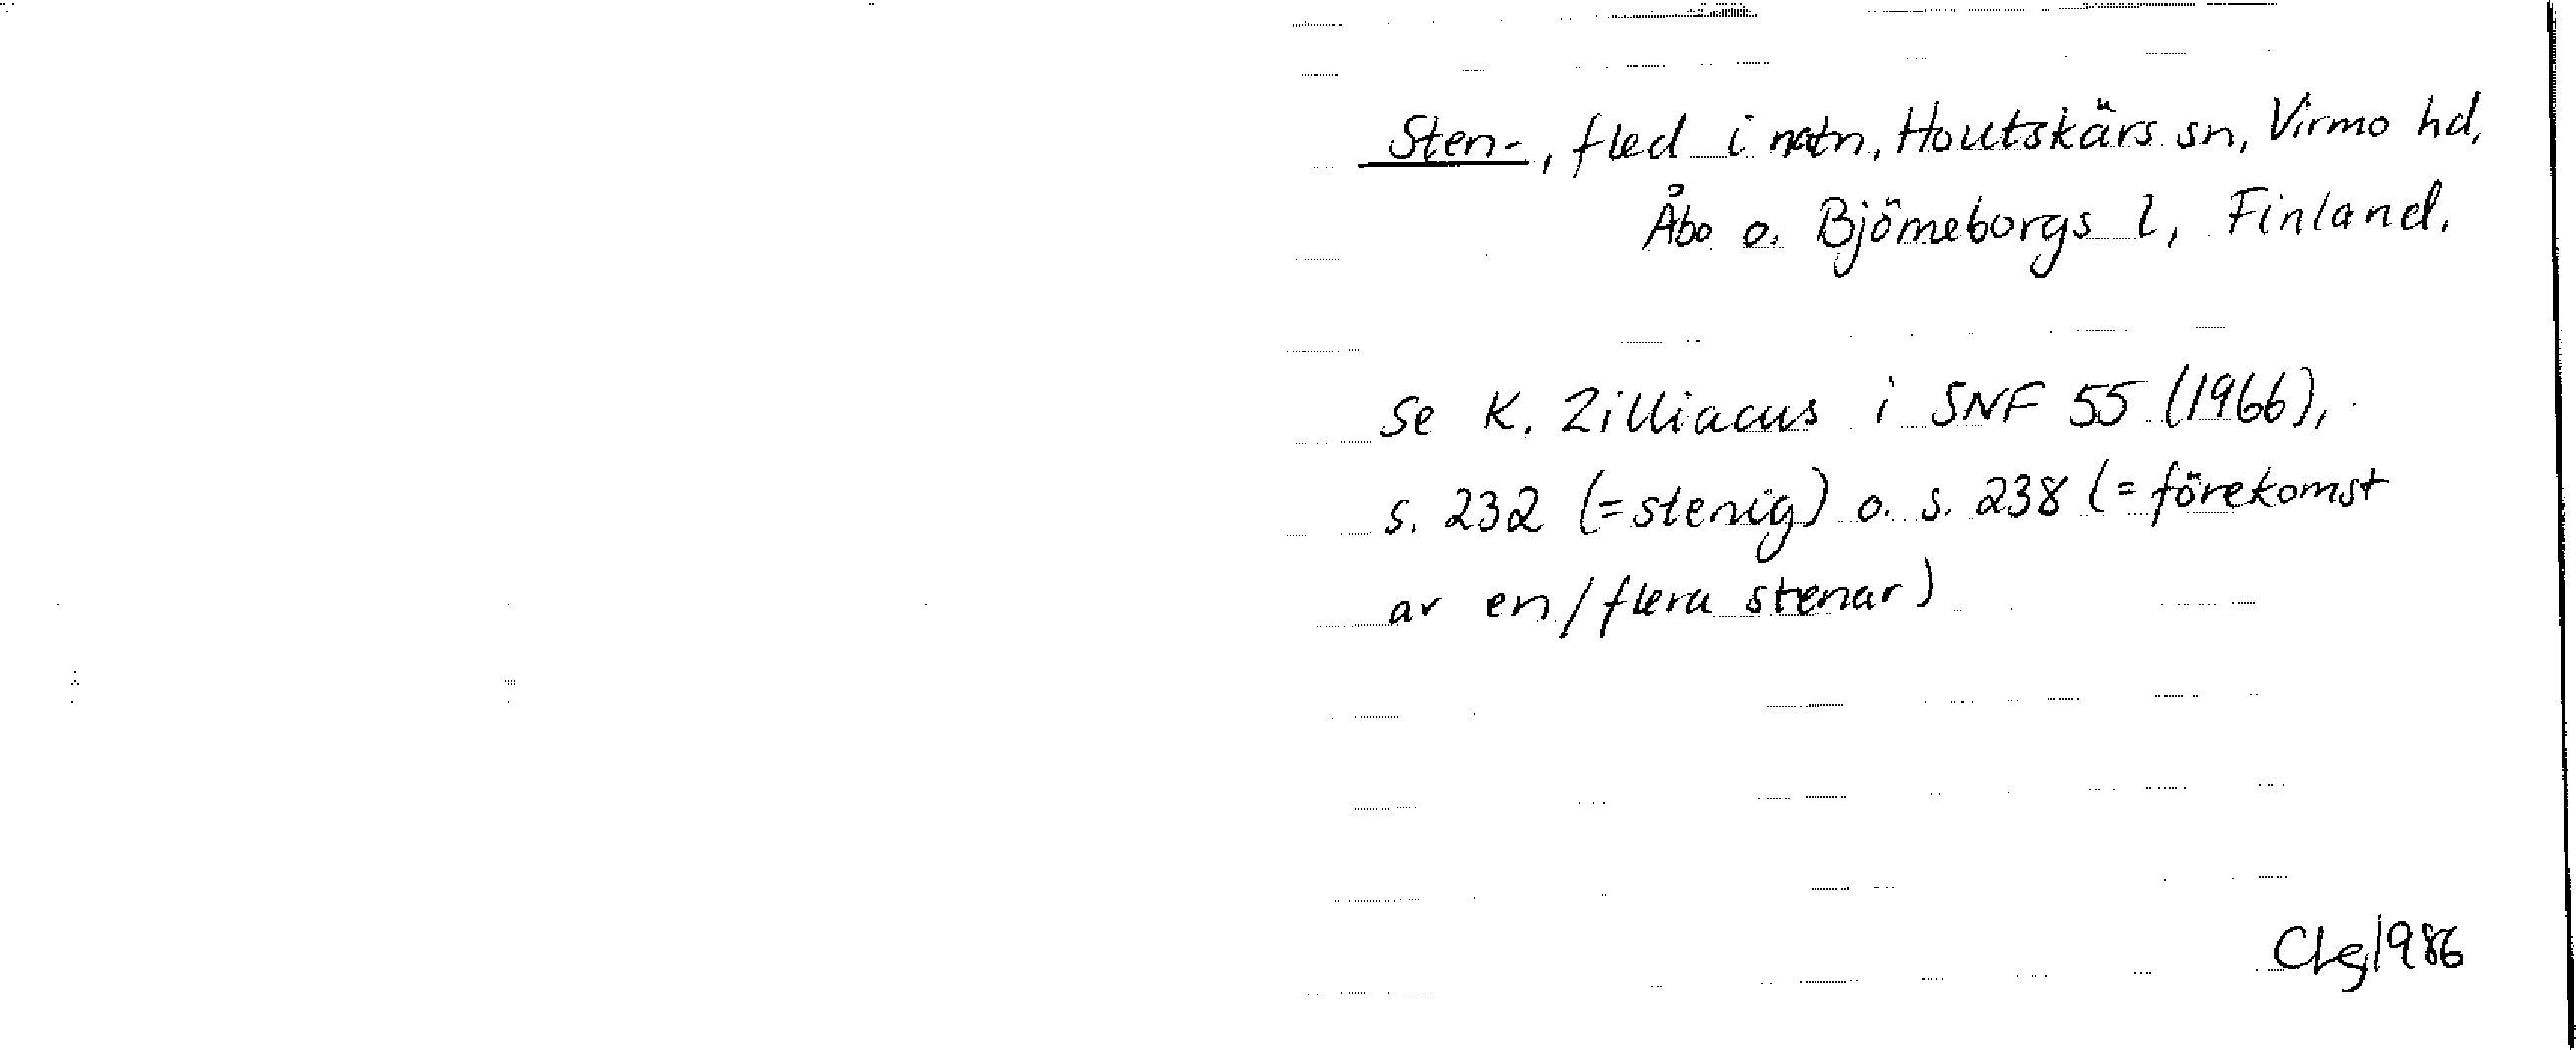 Sten-, fled i natn, Houtskärs sn, Virmo hd,
Åbo o. Björneborgs l, Finland.
Se K. Zilliacus i SNF 55 (1966),
s. 232 (= stenig) o. s. 238 (= förekomst
av en/flera stenar)
1986